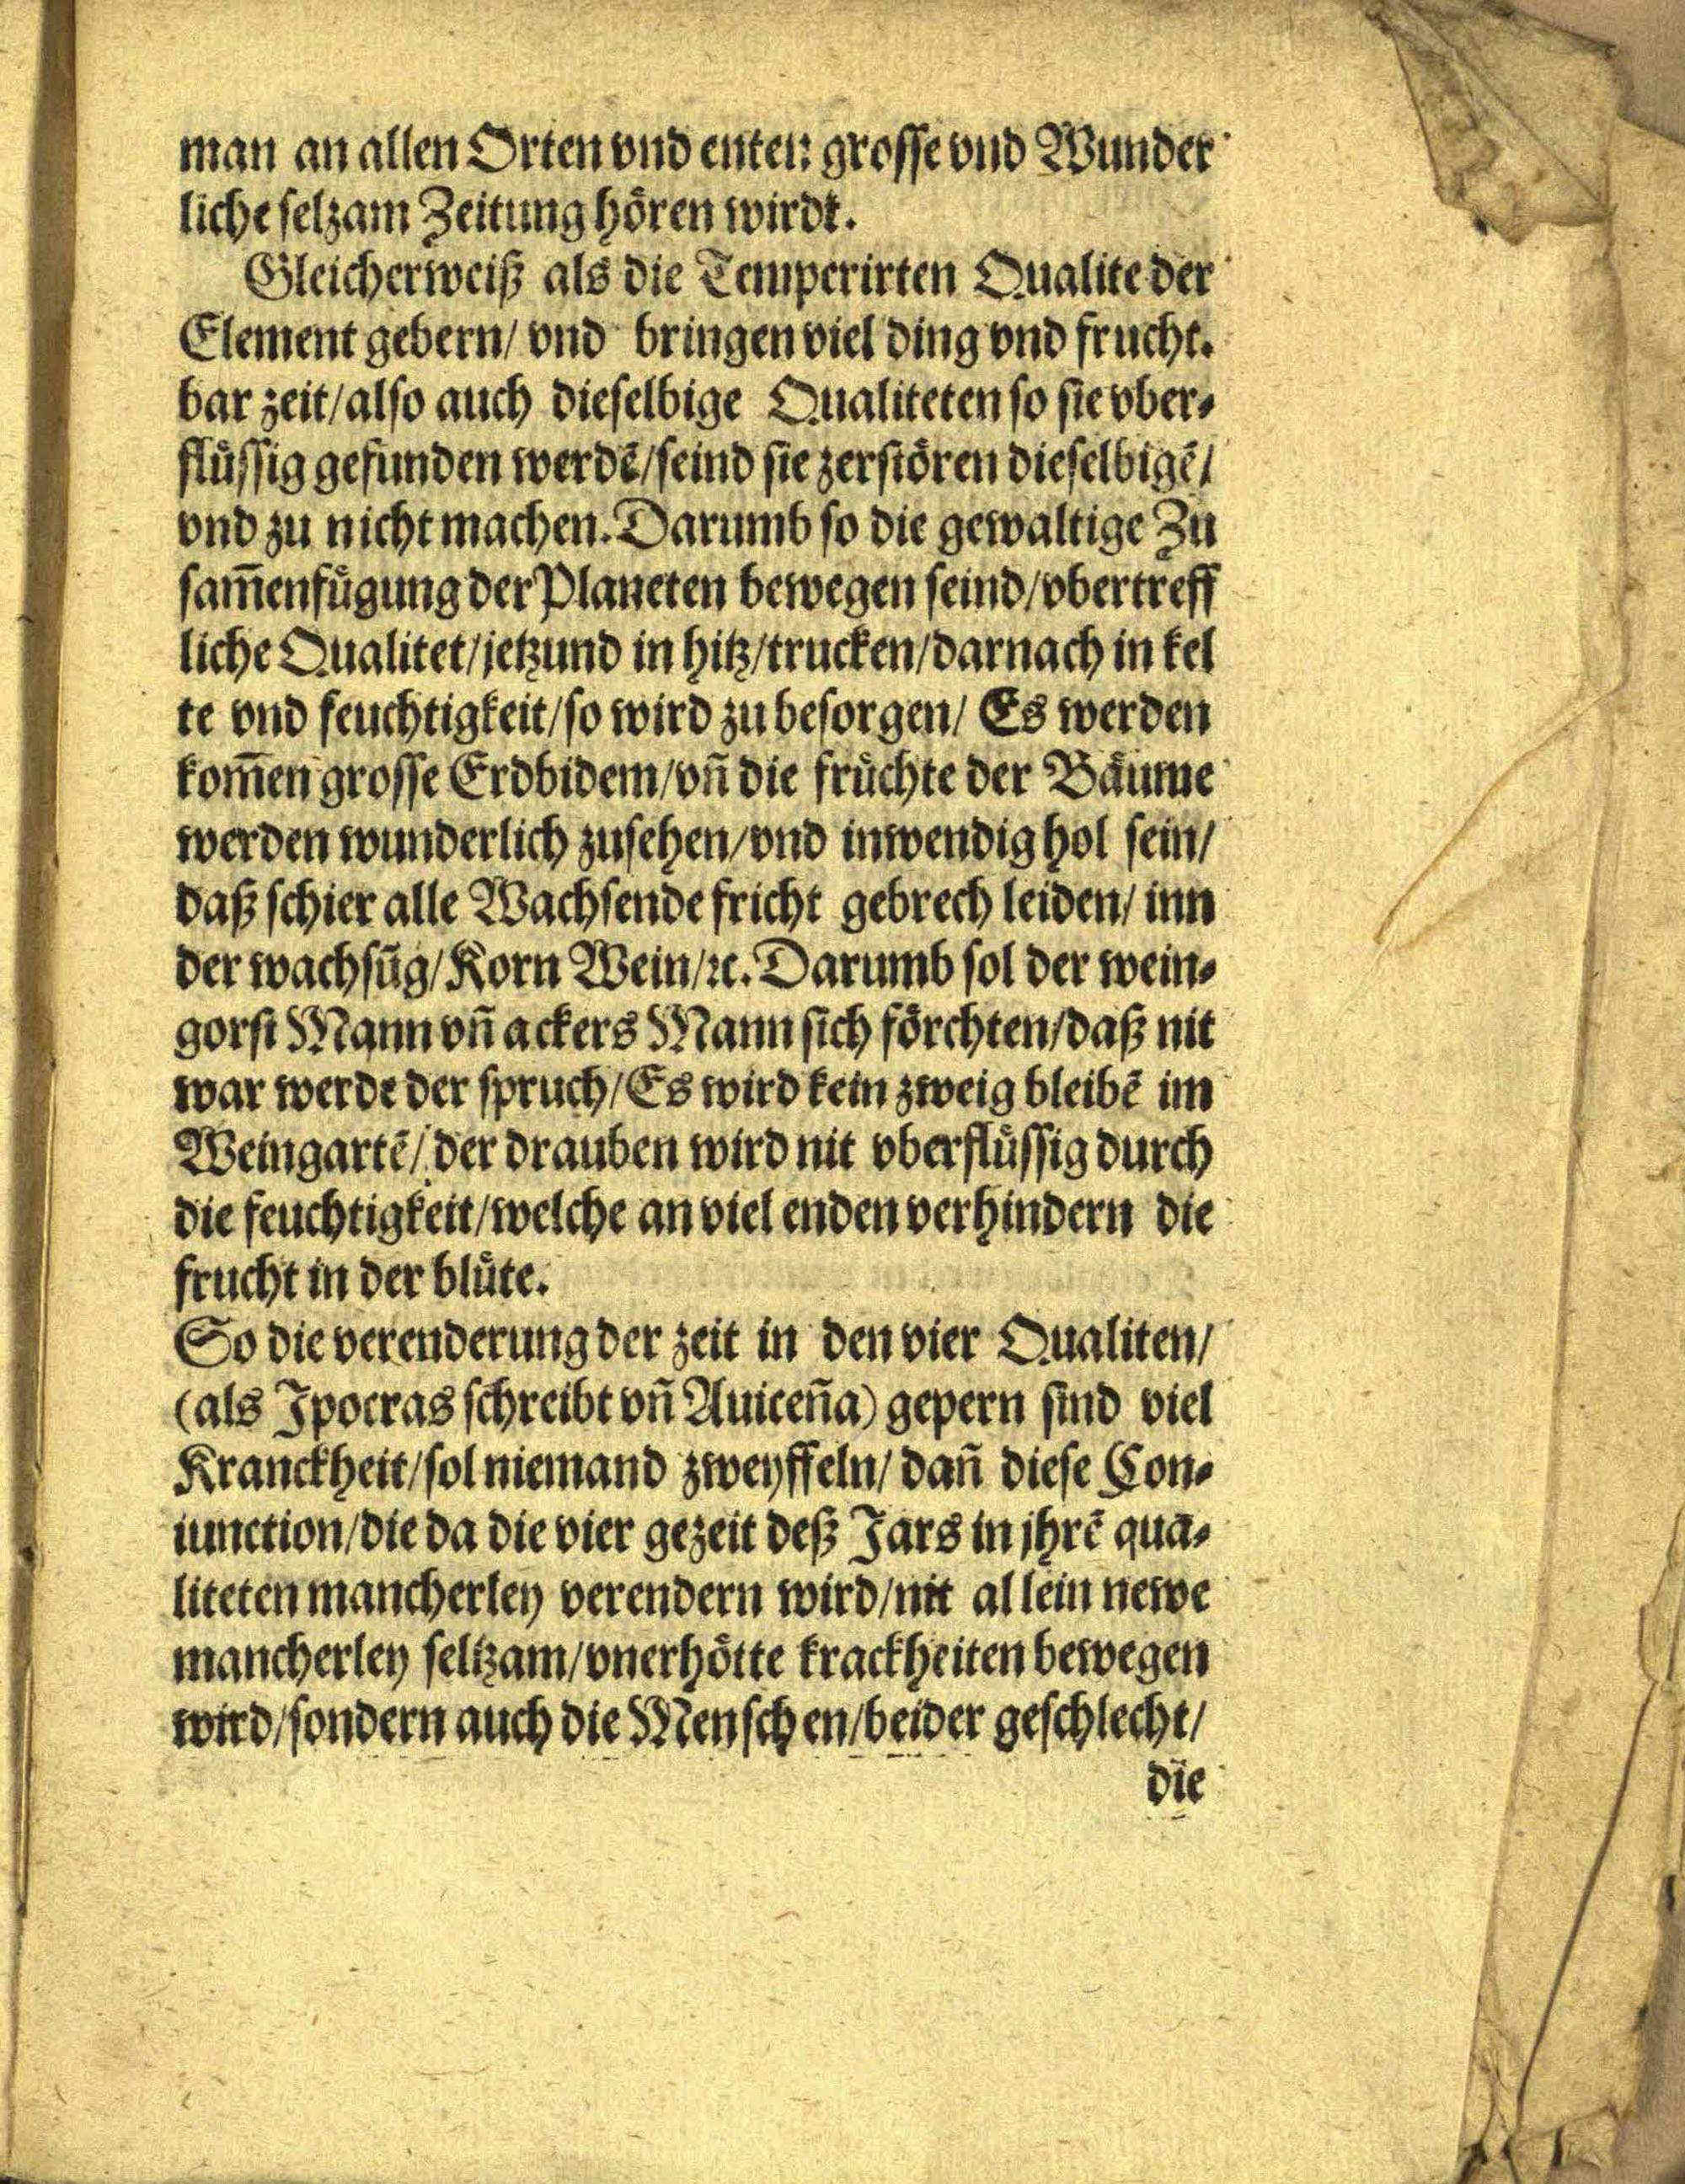 man an allen Orten vnd enten grosse vnd Wunder
liche selzam Zeitung hören wirdt.
Gleicherweiß als die Temperirten Qualite der
Element gebern/ vnd bringen viel ding vnd frucht.
bar zeit/also auch dieselbige Qualiteten so sie vber⸗
flüssig gefunden werdẽ/seind sie zerstören dieselbigẽ/
vnd zu nicht machen. Darumb so die gewaltige Zu
sam̃enfügung der Planeten bewegen seind/vbertreff
liche Qualitet/jetzund in hitz/trucken/darnach in kel
te vnd feuchtigkeit/so wird zu besorgen/ Es werden
kom̃en grosse Erdbidem/vñ die früchte der Bäume
werden wunderlich zusehen/vnd inwendig hol sein/
daß schier alle Wachsende fricht gebrech leiden/ inn
der wachsũg/Korn Wein/ꝛc. Darumb sol der wein⸗
gorst Mann vñ ackers Mann sich förchten/daß nit
war werde der spruch/Es wird kein zweig bleibẽ im
Weingartẽ/ der drauben wird nit vberflüssig durch
die feuchtigkeit/welche an viel enden verhindern die
frucht in der blüte.
So die verenderung der zeit in den vier Qualiten/
(als Ipocras schreibt vñ Auiceña) gepern sind viel
Kranckheit/sol niemand zweyffeln/ dañ diese Con⸗
iunction/die da die vier gezeit deß Jars in jhrẽ qua⸗
liteten mancherley verendern wird/nit allein newe
mancherley seltzam/vnerhötte krackheiten bewegen
wird/sondern auch die Menschen/beider geschlecht/
die